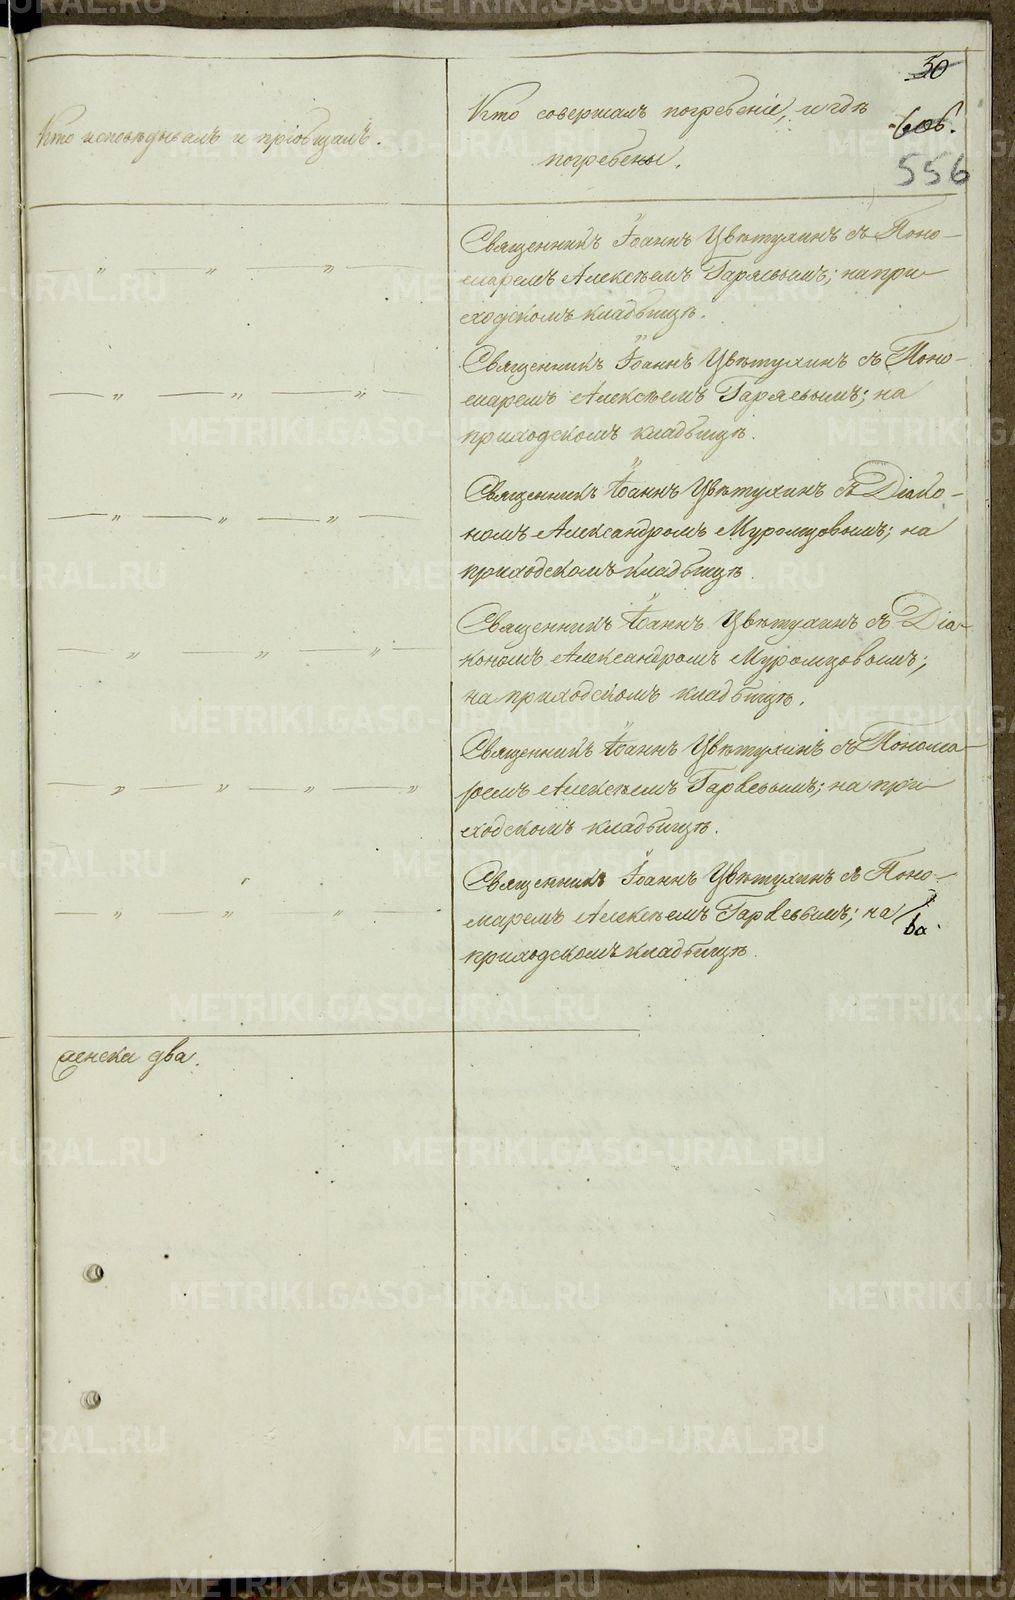 50
606.
556
Кто исповѣдывалъ и пріобщалъ.
Кто совершалъ погребеніе, и гдѣ
погребены.
Священникъ Іоаннъ Цвѣтухинъ съ Поно-
маремъ Алексѣемъ Гаряевымъ; на при-
ходскомъ кладбищѣ.
Священникъ Іоаннъ Цвѣтухинъ съ Поно-
маремъ Алексѣемъ Гаряевымъ; на
приходскомъ кладбищѣ.
Священникъ Іоаннъ Цвѣтухинъ съ Діако-
номъ Александромъ Муромцовымъ; на
приходскомъ кладбищѣ.
Священникъ Іоаннъ Цвѣтухинъ съ Діа-
кономъ Александромъ Муромцовымъ;
на приходскомъ кладбищѣ.
Священникъ Іоаннъ Цвѣтухинъ съ Понома-
ремъ Алексѣемъ Гаряевымъ; на при-
ходскомъ кладбищѣ.
Священникъ Іоаннъ Цвѣтухинъ съ Поно-
маремъ Алексѣемъ Гаряевымъ; на
приходскомъ кладбищѣ.
женска два.
METRIKI.GASO-URAL.RU